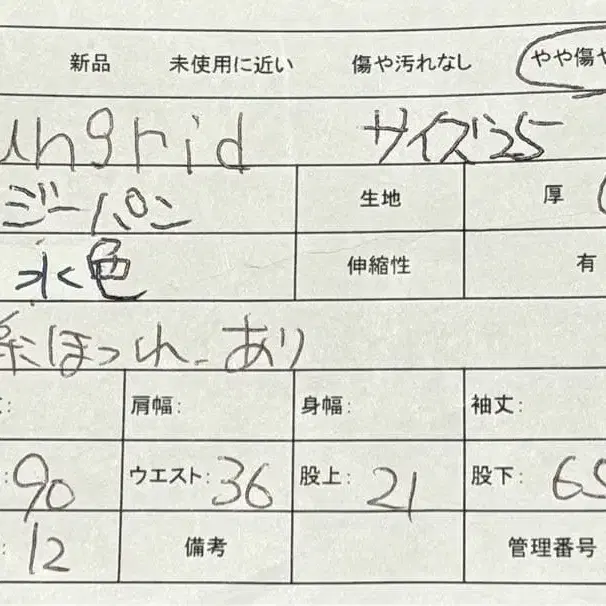 新品 未使用に近い 傷や汚れなし やや傷や
ungrid サイズ25
ジーパン 生地 厚
水色 伸縮性 有
糸ほつれ あり
: 肩幅: 身幅: 袖丈:
:90 ウエスト:36 股上:21 股下:65
:12 備考 管理番号